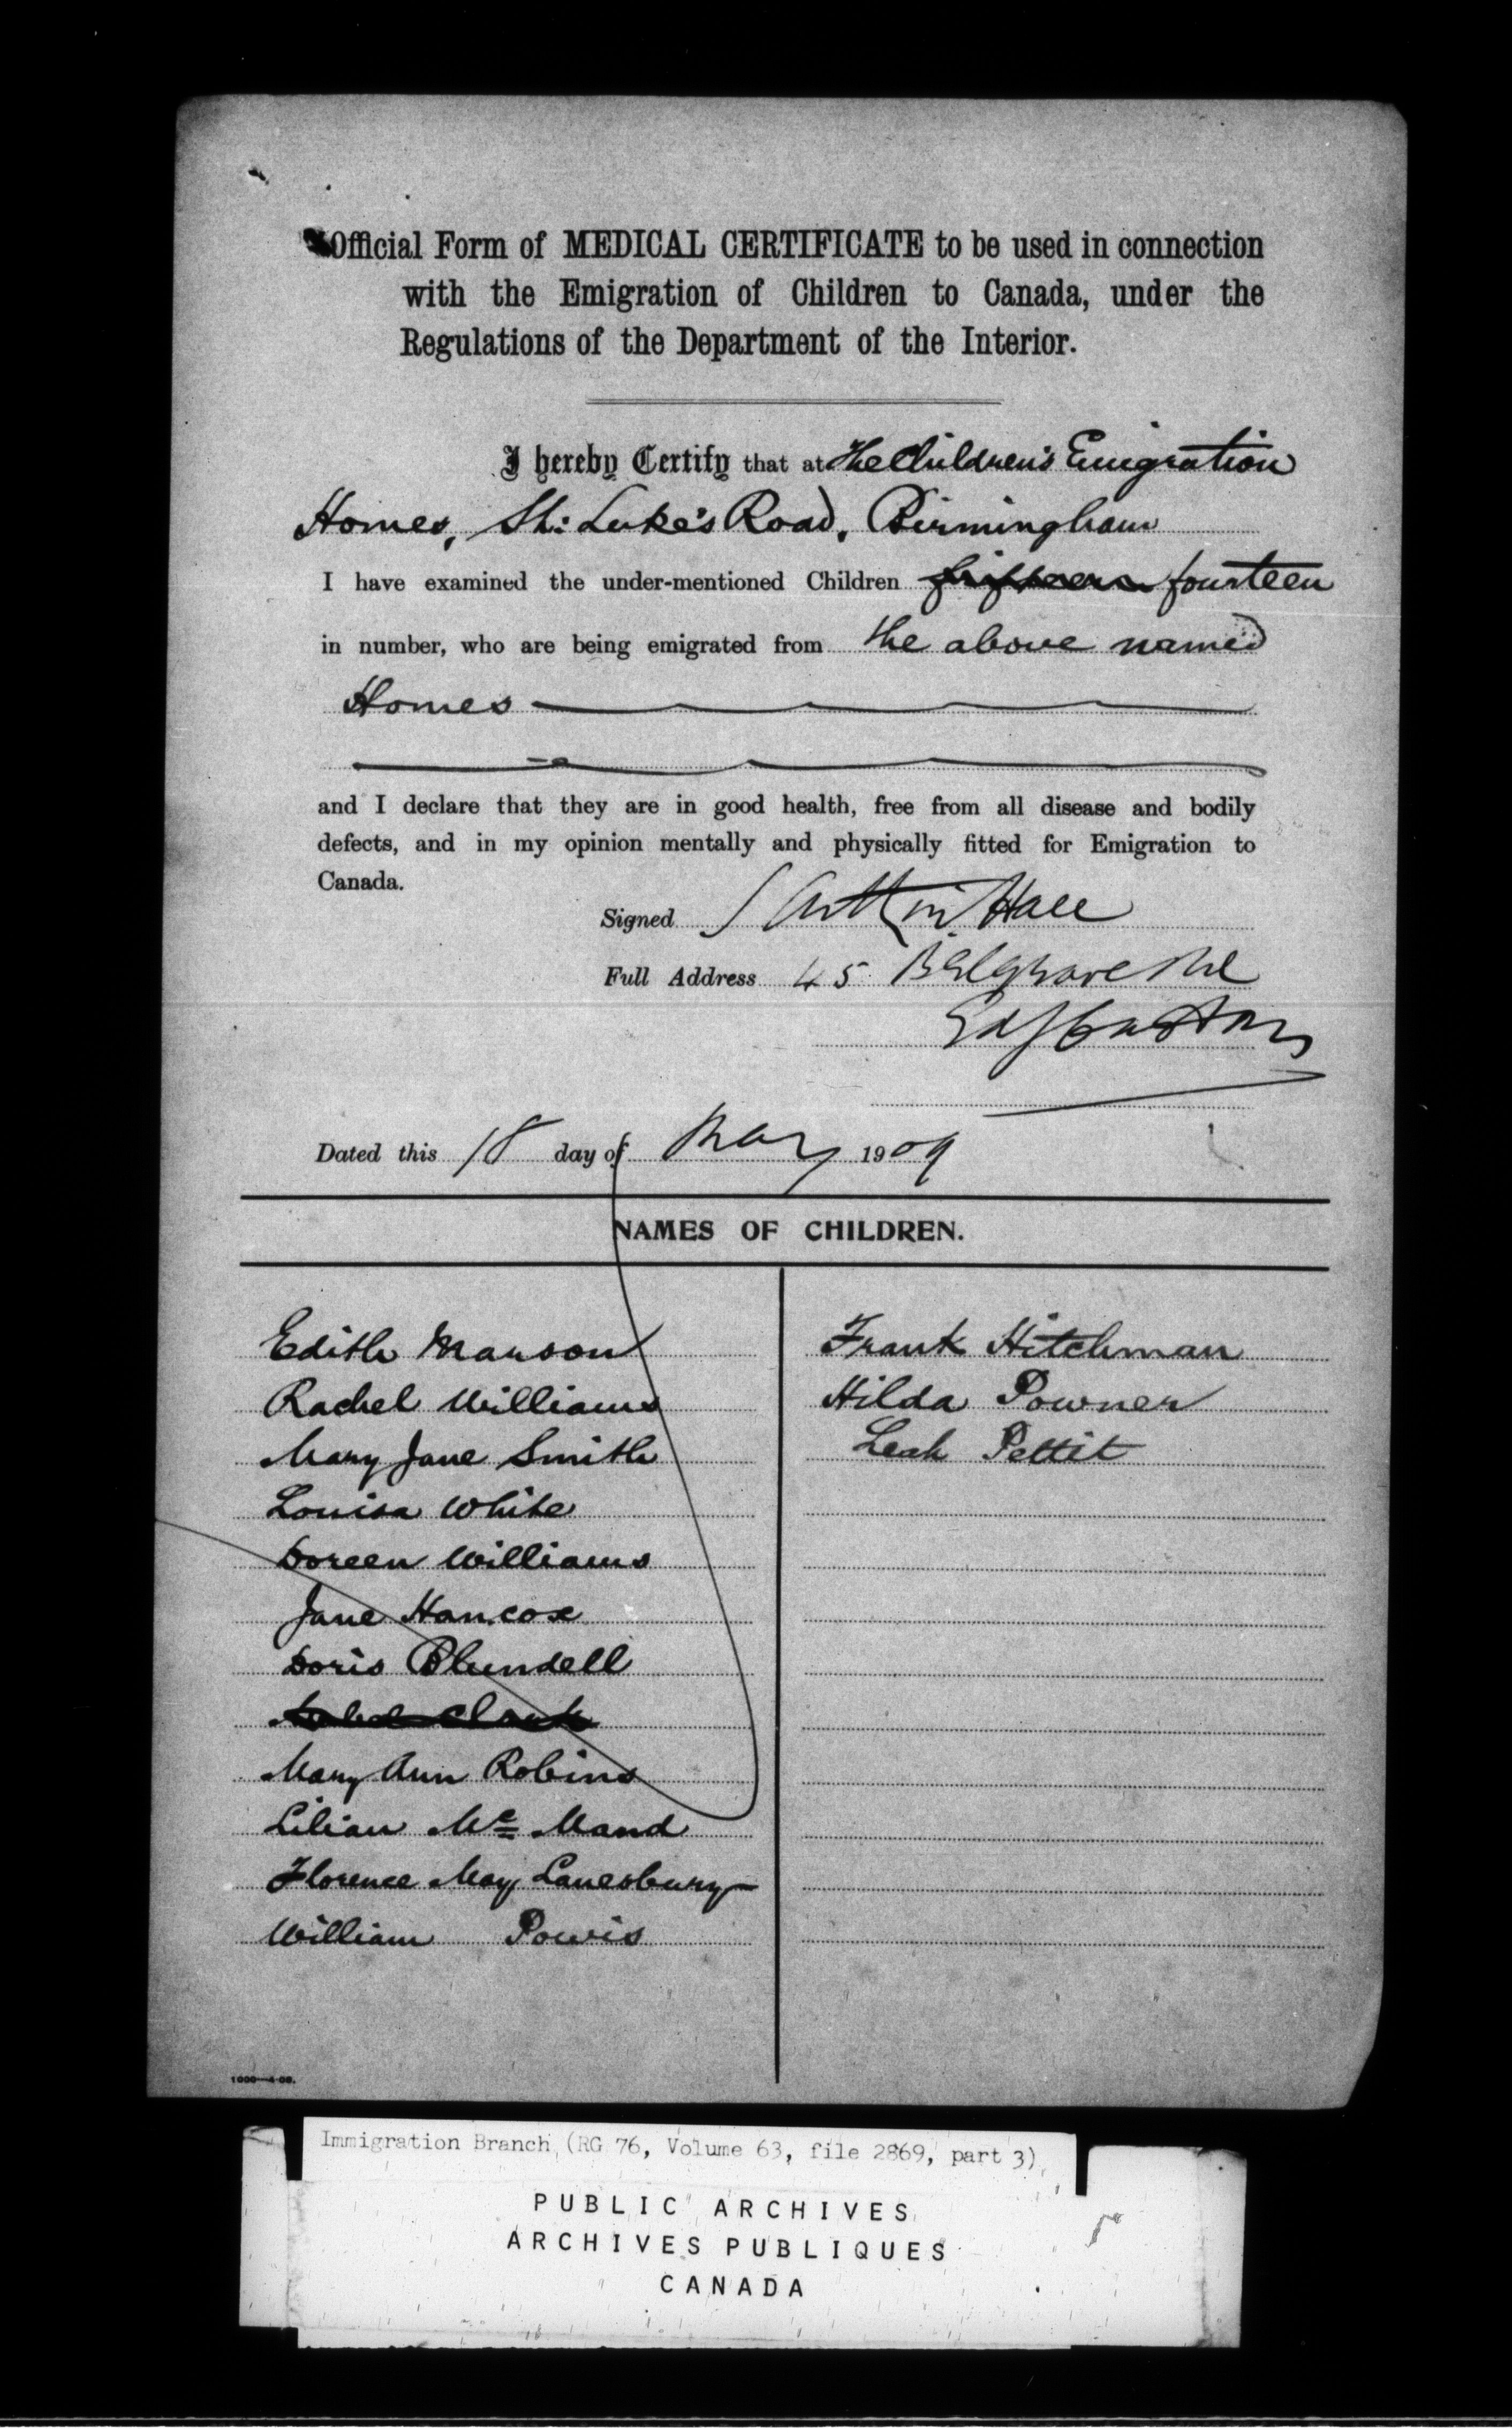 Official Form of MEDICAL CERTIFICATE to be used in connection
with the Emigration of Children to Canada, under the
Regulations of the Department of the Interior.
I hereby Certify that at The Children's Emigration
Homes, St: Luke's Road, Birmingham
I have examined the under-mentioned Children fifteen fourteen
in number, who are being emigrated from the above named
Homes
and I declare that they are in good health, free from all disease and bodily
defects, and in my opinion mentally and physically fitted for Emigration to
Canada.
Signed Hall
Full Address 45 Belgrave Rd
Edgbaston
Dated this 18 day of May 1909
NAMES OF CHILDREN.
Edith Manson
Rachel Williams
Mary Jane Smith
Louisa White
Doreen Williams
Jane Hancox
Doris Blundell
Clark
Mary Ann Robins
Lilian Mc Mand
Florence May Lanesbury
William Powis
Frank Hitchman
Hilda Powner
Leah Pettit
1000—4-08.
Immigration Branch (RG 76, Volume 63, file 2869, part 3)
PUBLIC ARCHIVES
ARCHIVES PUBLIQUES
CANADA